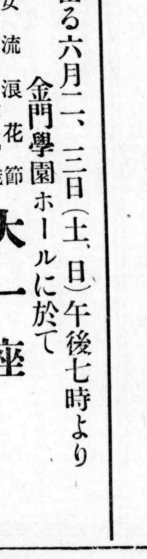 る六月二、三日(土、日)午後七時より
金門學園ホールに於て
女流浪花節
大一座